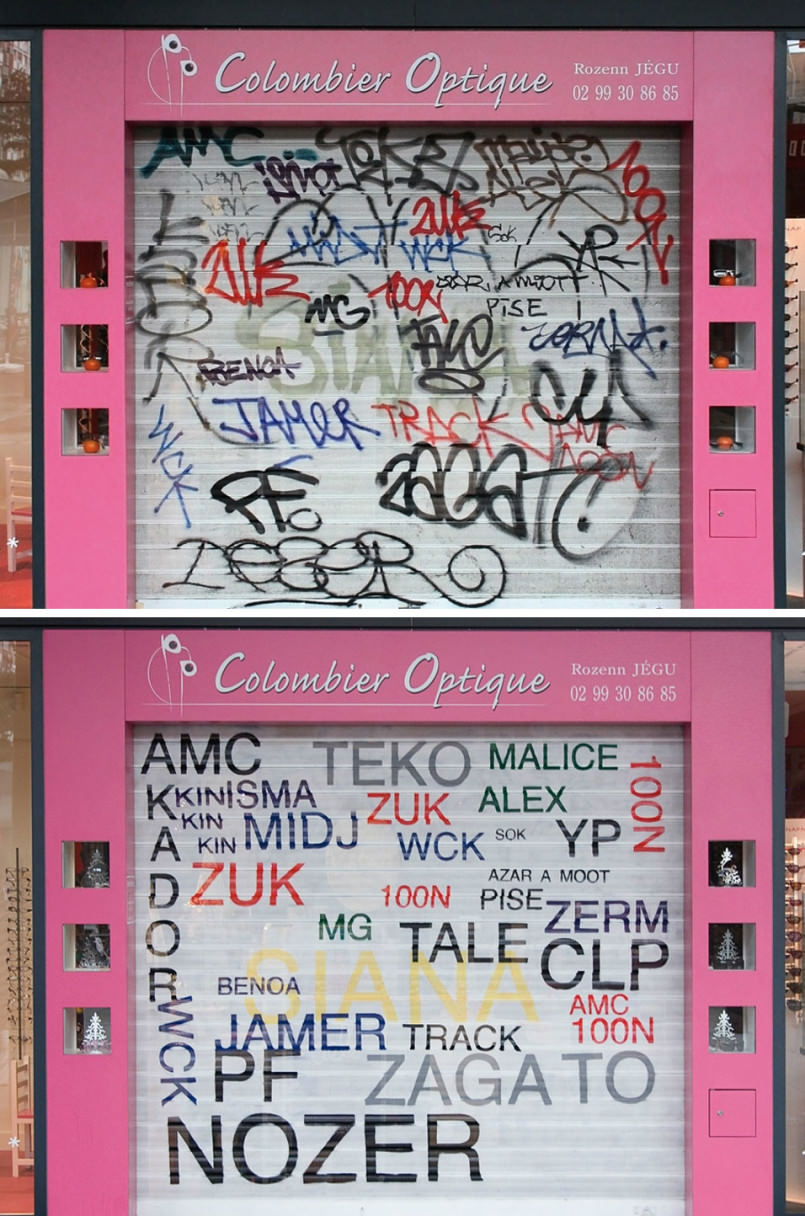 Colombier Optique
Rozenn JÉGU
02 99 30 86 85
AMC
ZUK
WCK
SOK
ZUK
100N
MG
PISE
BENOA
JAMER
TRACK
AMC
100N
WCK
PF
ZAGATO
Colombier Optique
Rozenn JÉGU
02 99 30 86 85
AMC
TEKO
MALICE
100N
KADOR
KINISMA
ZUK
ALEX
KIN
MIDJ
WCK
SOK
YP
KIN
ZUK
100N
AZAR A MOOT
PISE
ZERM
MG
TALE
CLP
SIANA
BENOA
AMC
WCK
JAMER
TRACK
100N
PF
ZAGATO
NOZER